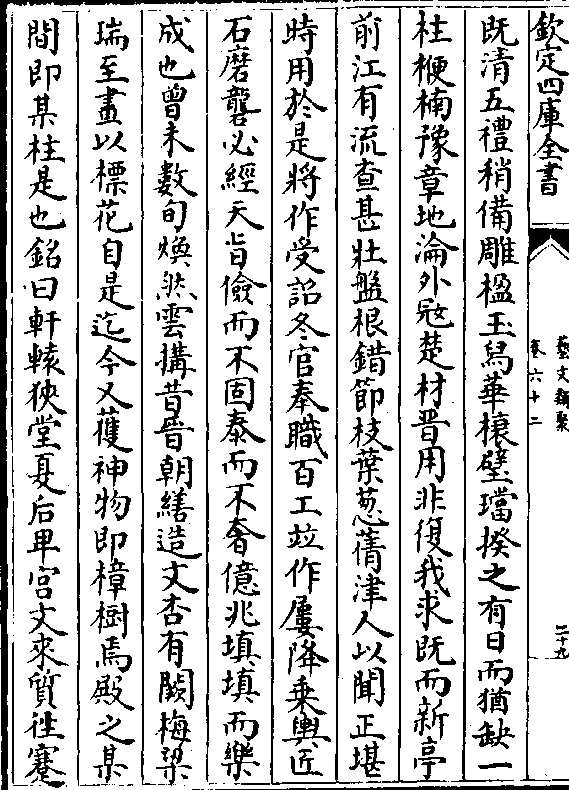 欽定四庫全書
藝文類聚
卷六十二
二十九
既清五禮稍備雕楹玉舄華榱璧璫揆之有日而猶缺一
柱楩楠豫章地淪外冦楚材晋用非復我求既而新亭
前江有流查甚壯盤根錯節枝葉葱蒨津人以聞正堪
時用於是將作受詔冬官奉職百工竝作屢降乗輿匠
石磨礱必經天旨儉而不固泰而不奢億兆填填而樂
成也曾未數旬煥然雲搆昔晉朝繕造文杏有闕梅梁
瑞至畫以標花自是迄今又獲神物即樟樹焉殿之某
間即某柱是也銘曰軒轅狹堂夏后卑宮文來質徃蹇